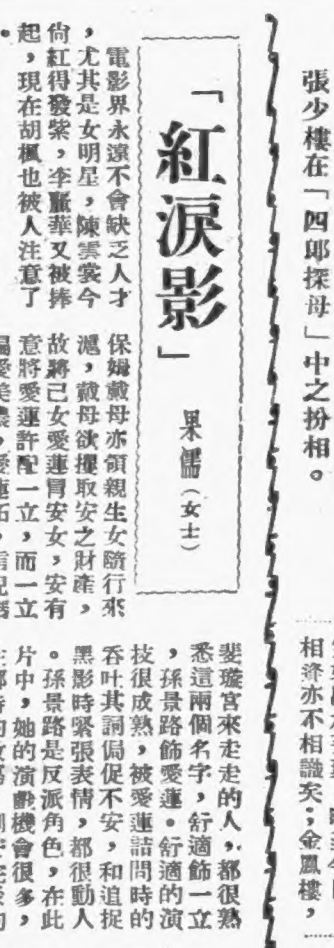 張少樓在「四郎探母」中之扮相。
相逢亦不相識矣；金鳳樓，
「紅淚影」
果儒（女士）
電影界永遠不會缺乏人才
，尤其是女明星，陳雲裳今
尙紅得發紫，李麗華又被捧
起，現在胡楓也被人注意了
。
保姆戴母亦領親生女隨行來
滬，戴母欲攫取安之財產，
故將己女愛蓮冒安女，安有
意將愛蓮許配一立，而一立
斐璇宮來走走的人，都很熟
悉這兩個名字，舒適飾一立
，孫景路飾愛蓮。舒適的演
技很成熟，被愛蓮詰問時的
吞吐其詞侷促不安，和追捉
黑影時緊張表情，都很動人
。孫景路是反派角色，在此
片中，她的演戲機會很多，